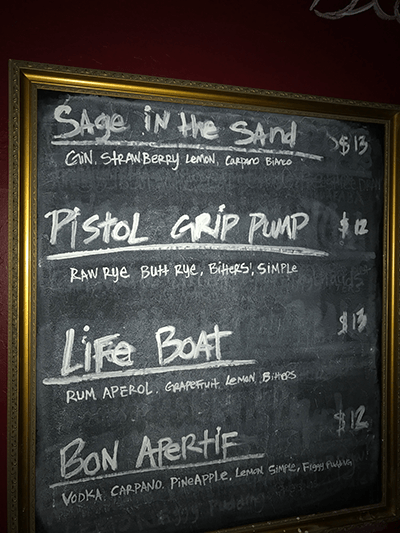 Sage in the Sand $13
Gin, Strawberry Lemon, Carpano Bianco
Pistol Grip Pump $12
Raw Rye Butt Rye, Bitters, Simple
Life Boat $13
Rum Aperol, Grapefruit, Lemon, Bitters
Bon Apertif $12
Vodka, Carpano, Pineapple, Lemon Simple, Figgy Pudding